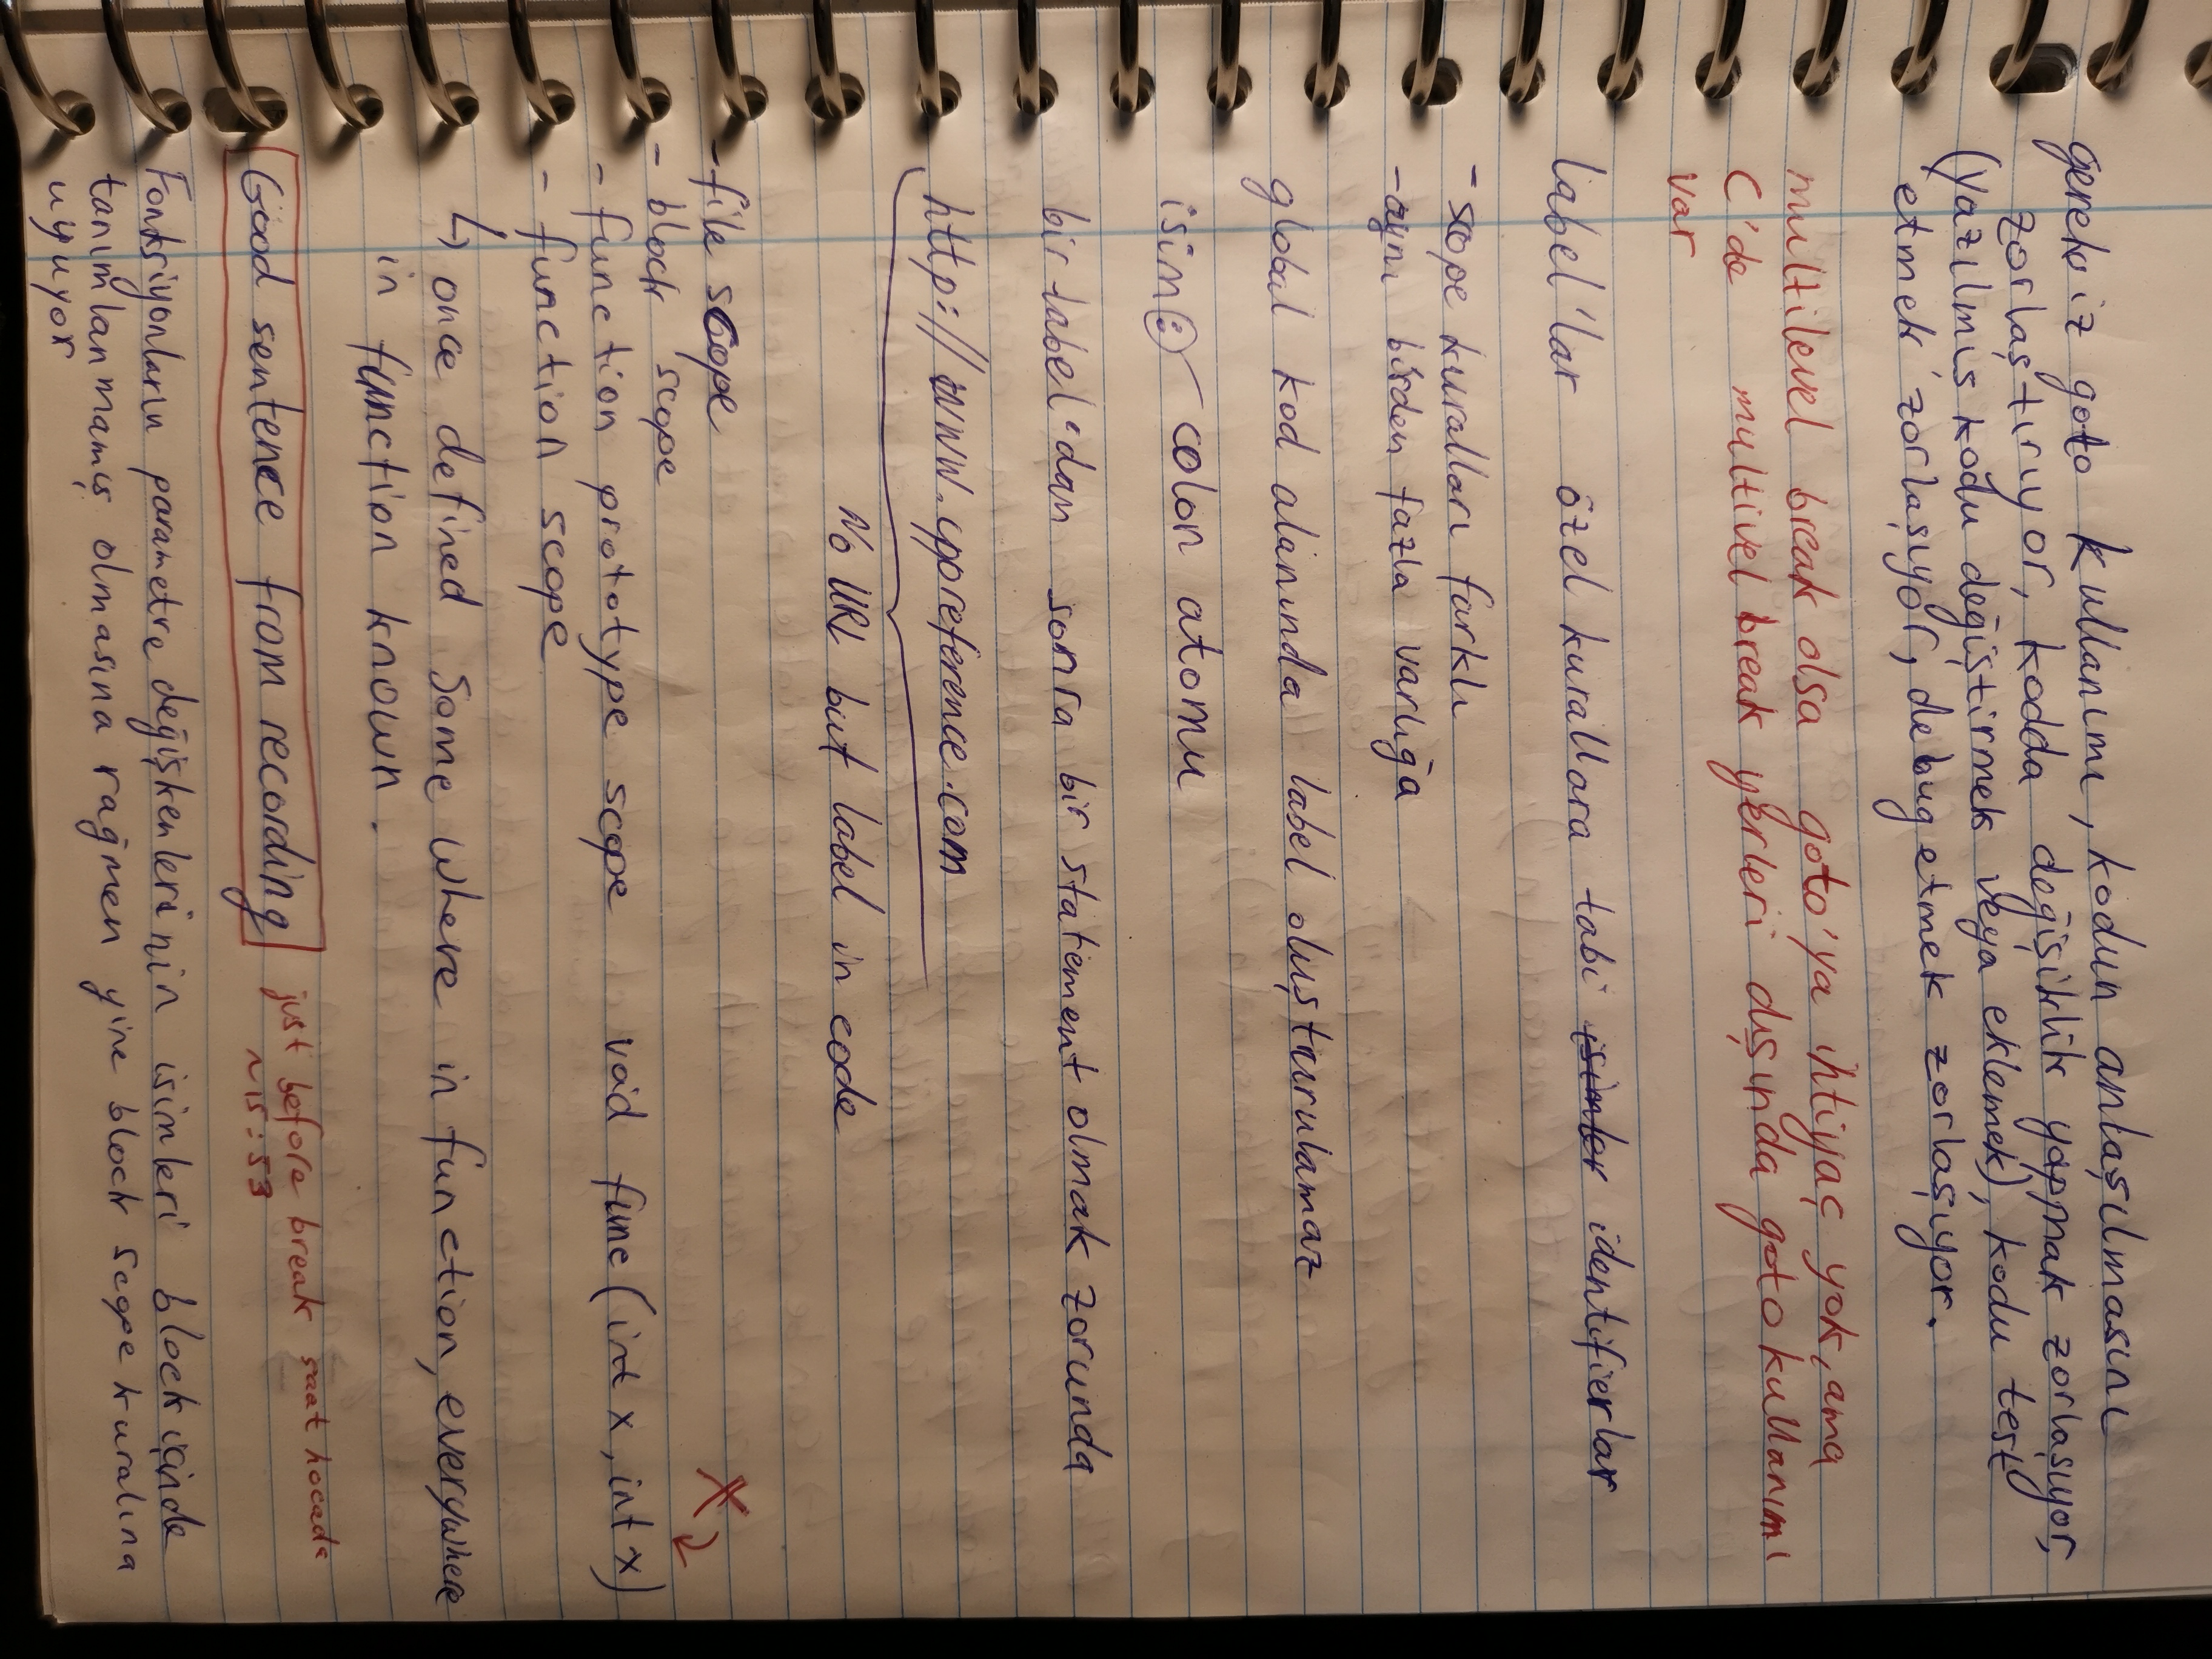 gereksiz goto kullanımı, kodun anlaşılmasını
zorlaştırıyor, kodda değişiklik yapmak zorlaşıyor,
(yazılmış kodu değiştirmek veya eklemek), kodu test
etmek zorlaşıyor, debug etmek zorlaşıyor.
multilevel break olsa goto'ya ihtiyaç yok, ama
C'de multivel break yerleri dışında goto kullanımı
var
label'lar özel kurallara tabi isimler identifierlar
- scope kuralları farklı
- aynı birden fazla varlığa
global kod alanında label oluşturulamaz
isim : colon atomu
bir label'dan sonra bir statement olmak zorunda
http://www.cppreference.com
No URL but label in code
- file scope
- block scope
- function prototype scope void func (int x, int x)
- function scope
↳ once defined some where in function, everywhere
in function known.
Good sentence from recording just before break saat hocada
~15:53
Fonksiyonların parametre değişkenlerinin isimleri block içinde
tanımlanmamış olmasına rağmen yine block scope kuralına
uyuyor